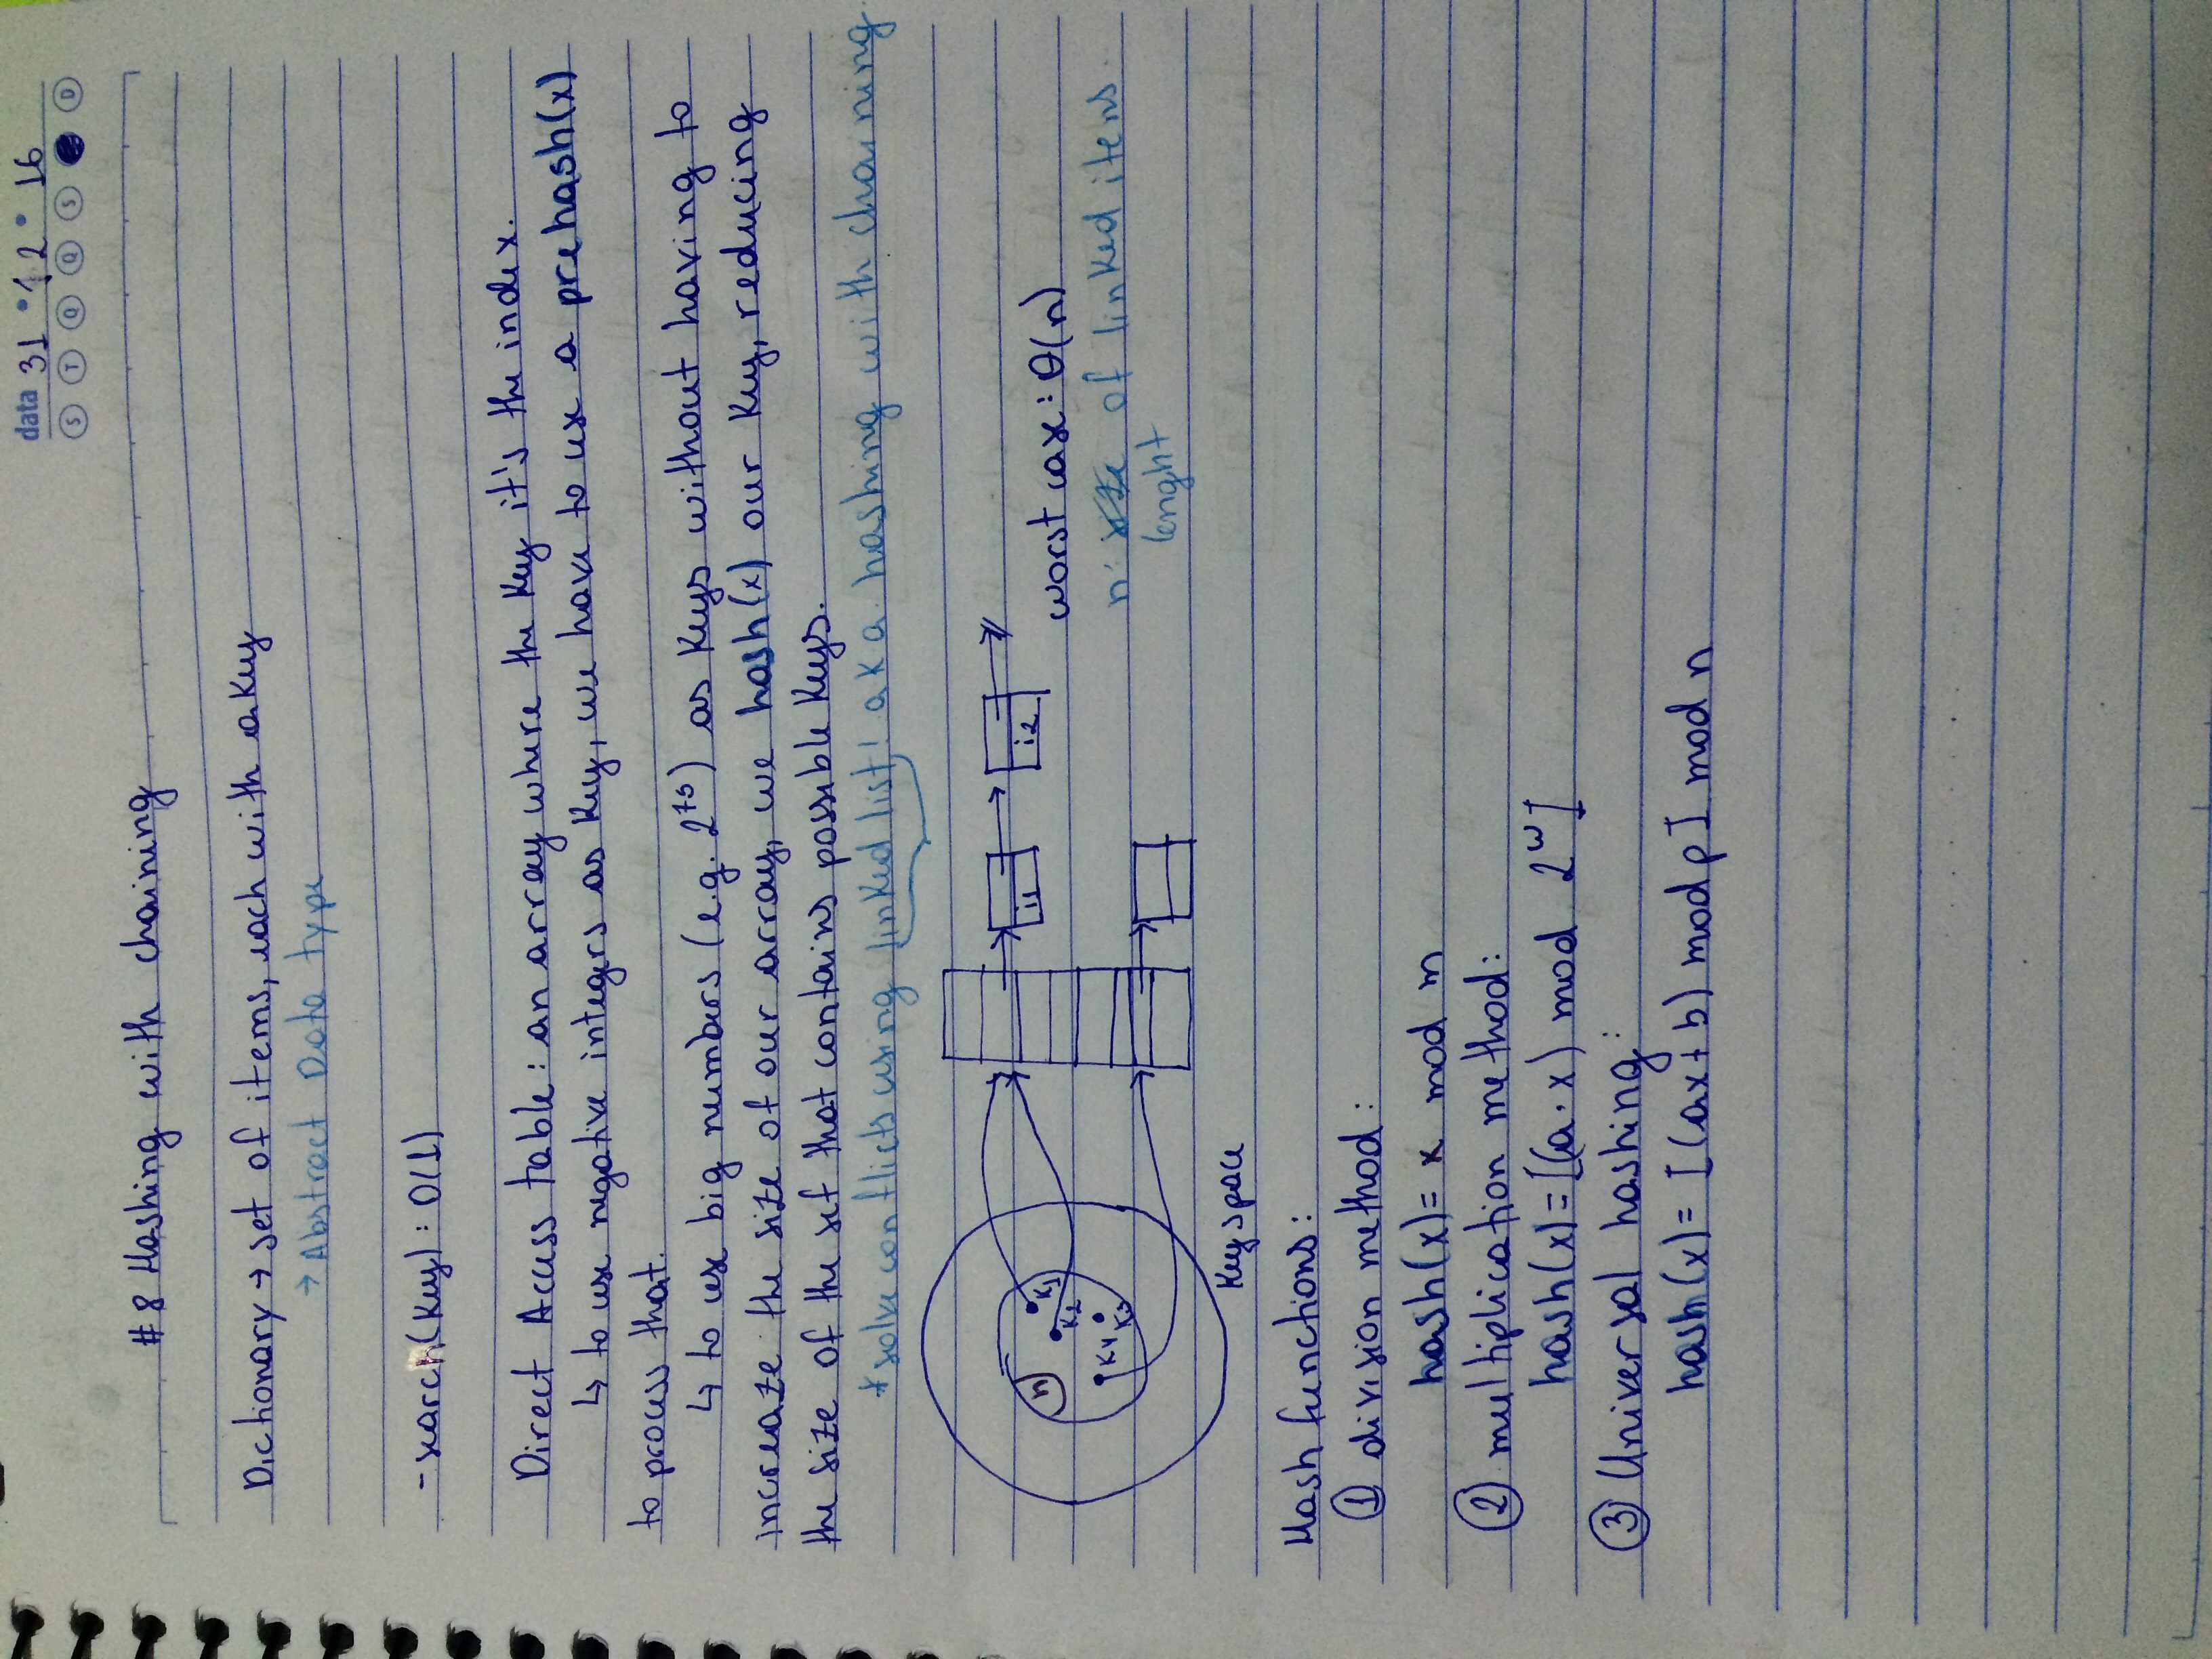 data 31 • 12 • 16
S T Q Q S D
#8 Hashing with chaining
Dictionary → set of items, each with a key
→ Abstract Data type
- search(key) : O(1)
Direct Access table : an array where the key it's the index.
↳ to use negative integers as key, we have to use a prehash(x)
to process that.
↳ to use big numbers (e.g. 2^75) as keys without having to
increaze the size of our array, we hash(x) our key, reducing
the size of the set that contains possible keys.
* solve conflicts using linked list! aka hashing with chaining
n K1 K2 K4 K3
i1 i2
worst case : Θ(n)
n: size of linked itens.
lenght
Key space
Hash functions:
① division method :
hash(x) = x mod m
② multiplication method:
hash(x) = [(a · x) mod 2^w]
③ Universal hashing :
hash(x) = [(ax + b) mod p] mod n